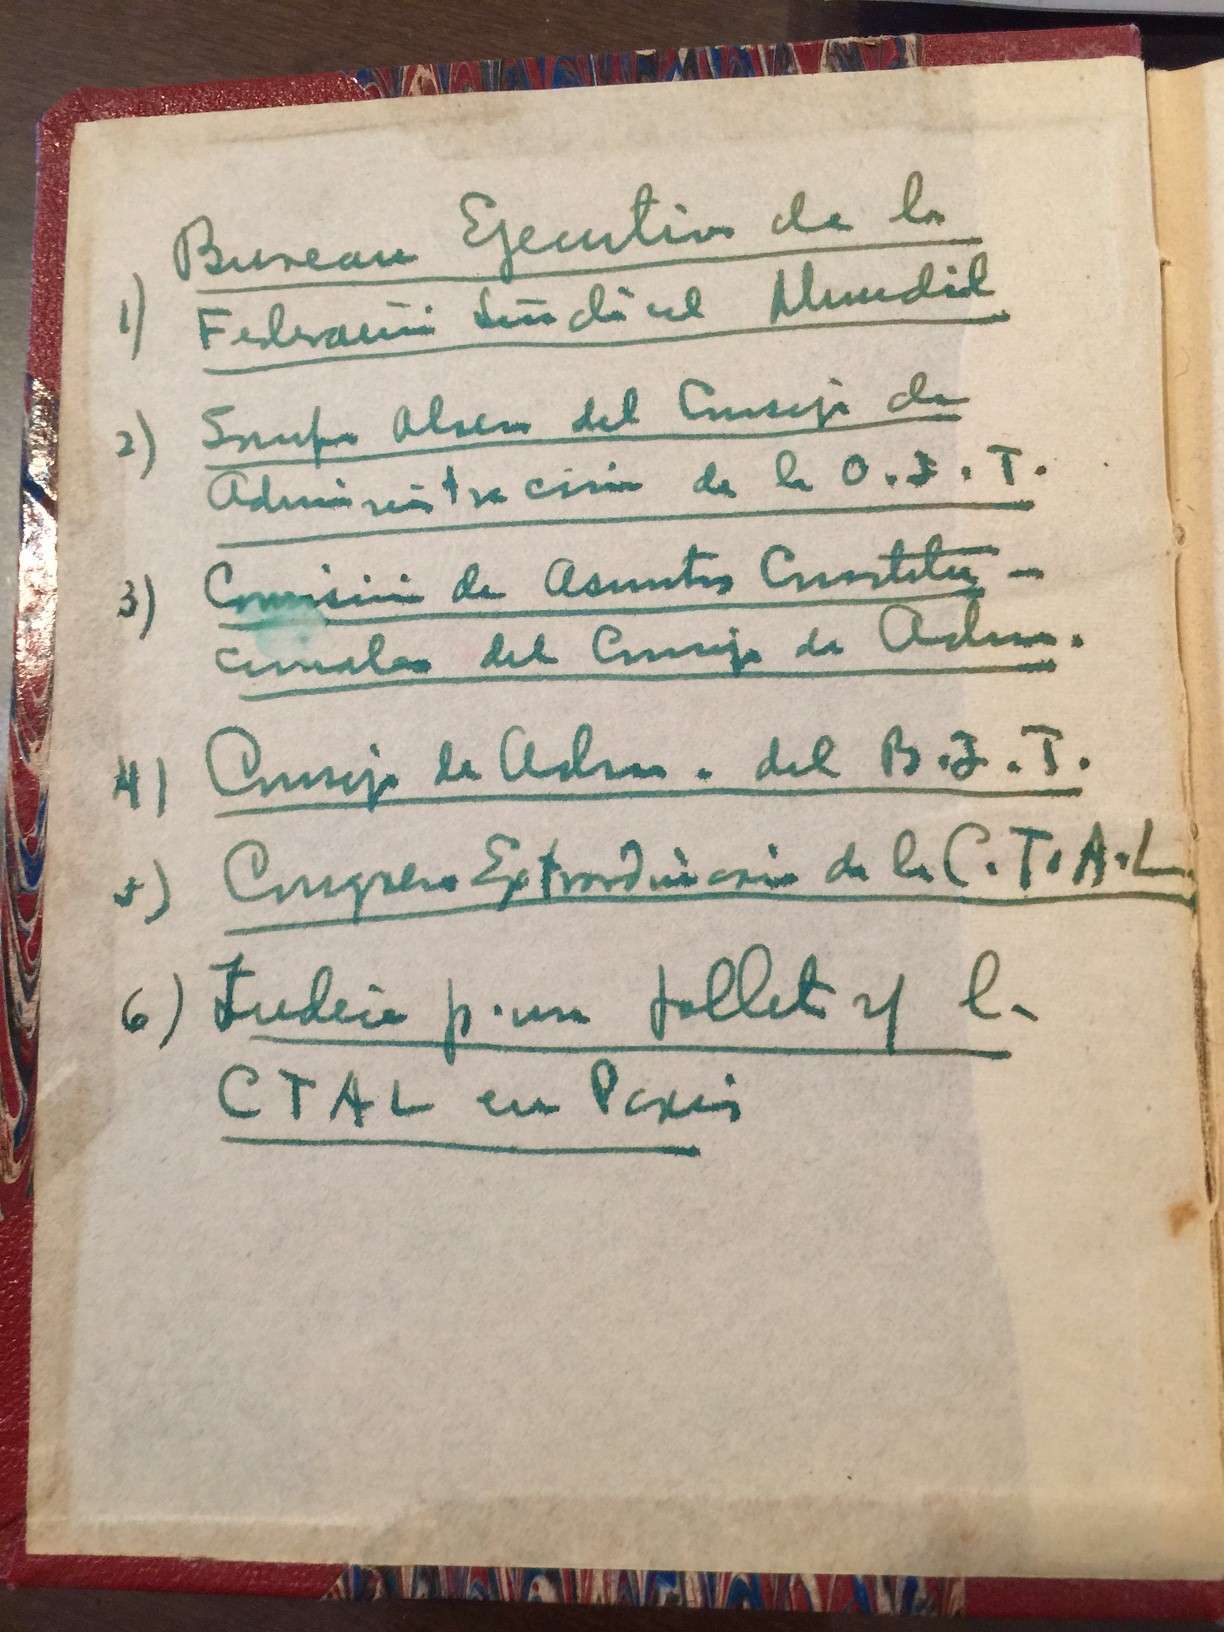 1) Bureau Ejecutivo de la
Federación Sindical Mundial
2) Grupo Obrero del Consejo de
Administración de la O.I.T.
3) Comisión de Asuntos Constitu-
cionales del Consejo de Adm.
4) Consejo de Adm. del B.I.T.
5) Congreso Extraordinario de la C.T.A.L.
6) Indice p. un folleto s/ la
CTAL en Paris